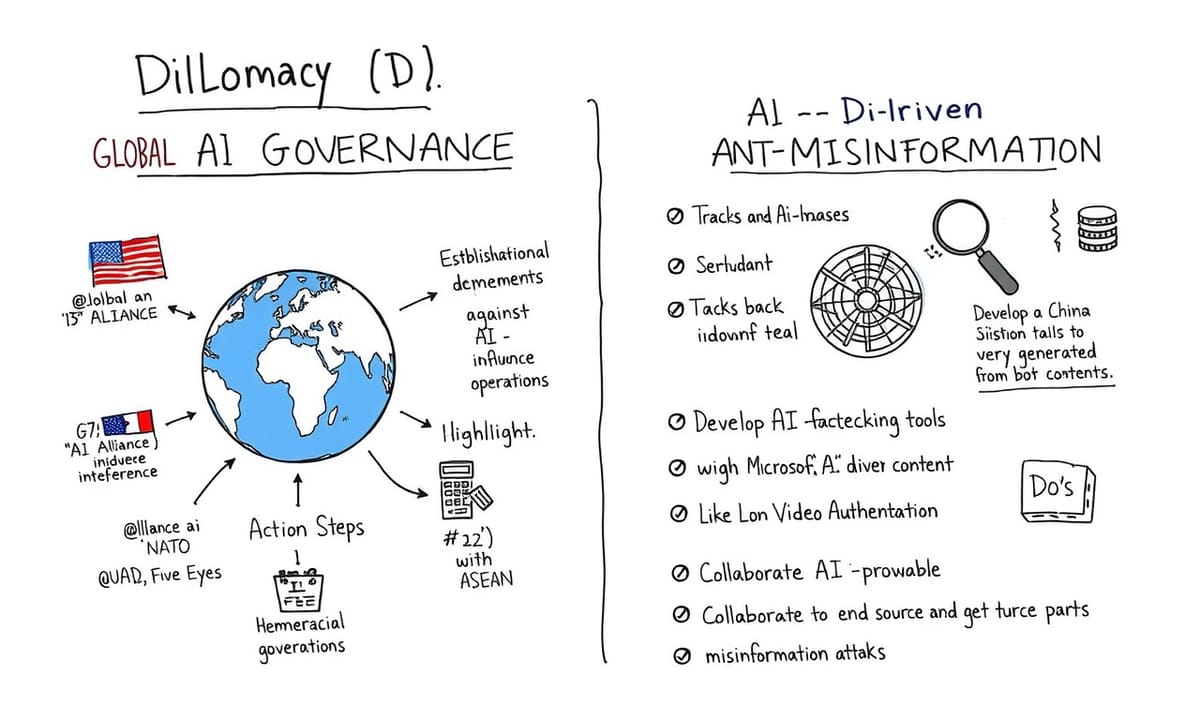 DilLomacy (D).
GLOBAL AI GOVERNANCE
@Jolbal an
'13" ALIANCE
G7!
"A1 Alliance)
iniduece
inteference
@lllance ai
'NATO
@UAD, Five Eyes
Action Steps
FEE
Hemmeracial
goverations
Estblishational
demements
against
AI -
influnce
operations
Highllight.
#22')
with
ASEAN
AI -- Di-lriven
ANT-MISINFORMATION
Tracks and Ai-Inases
Serludant
Tacks back
iidownf teal
Develop a China
Siistion talls to
very generated
from bot contents.
Develop AI -factecking tools
wigh Microsof, A." diver content
Like Lon Video Authentation
Do's
Collaborate AI -prowable
Collaborate to end source and get turce parts
misinformation attaks